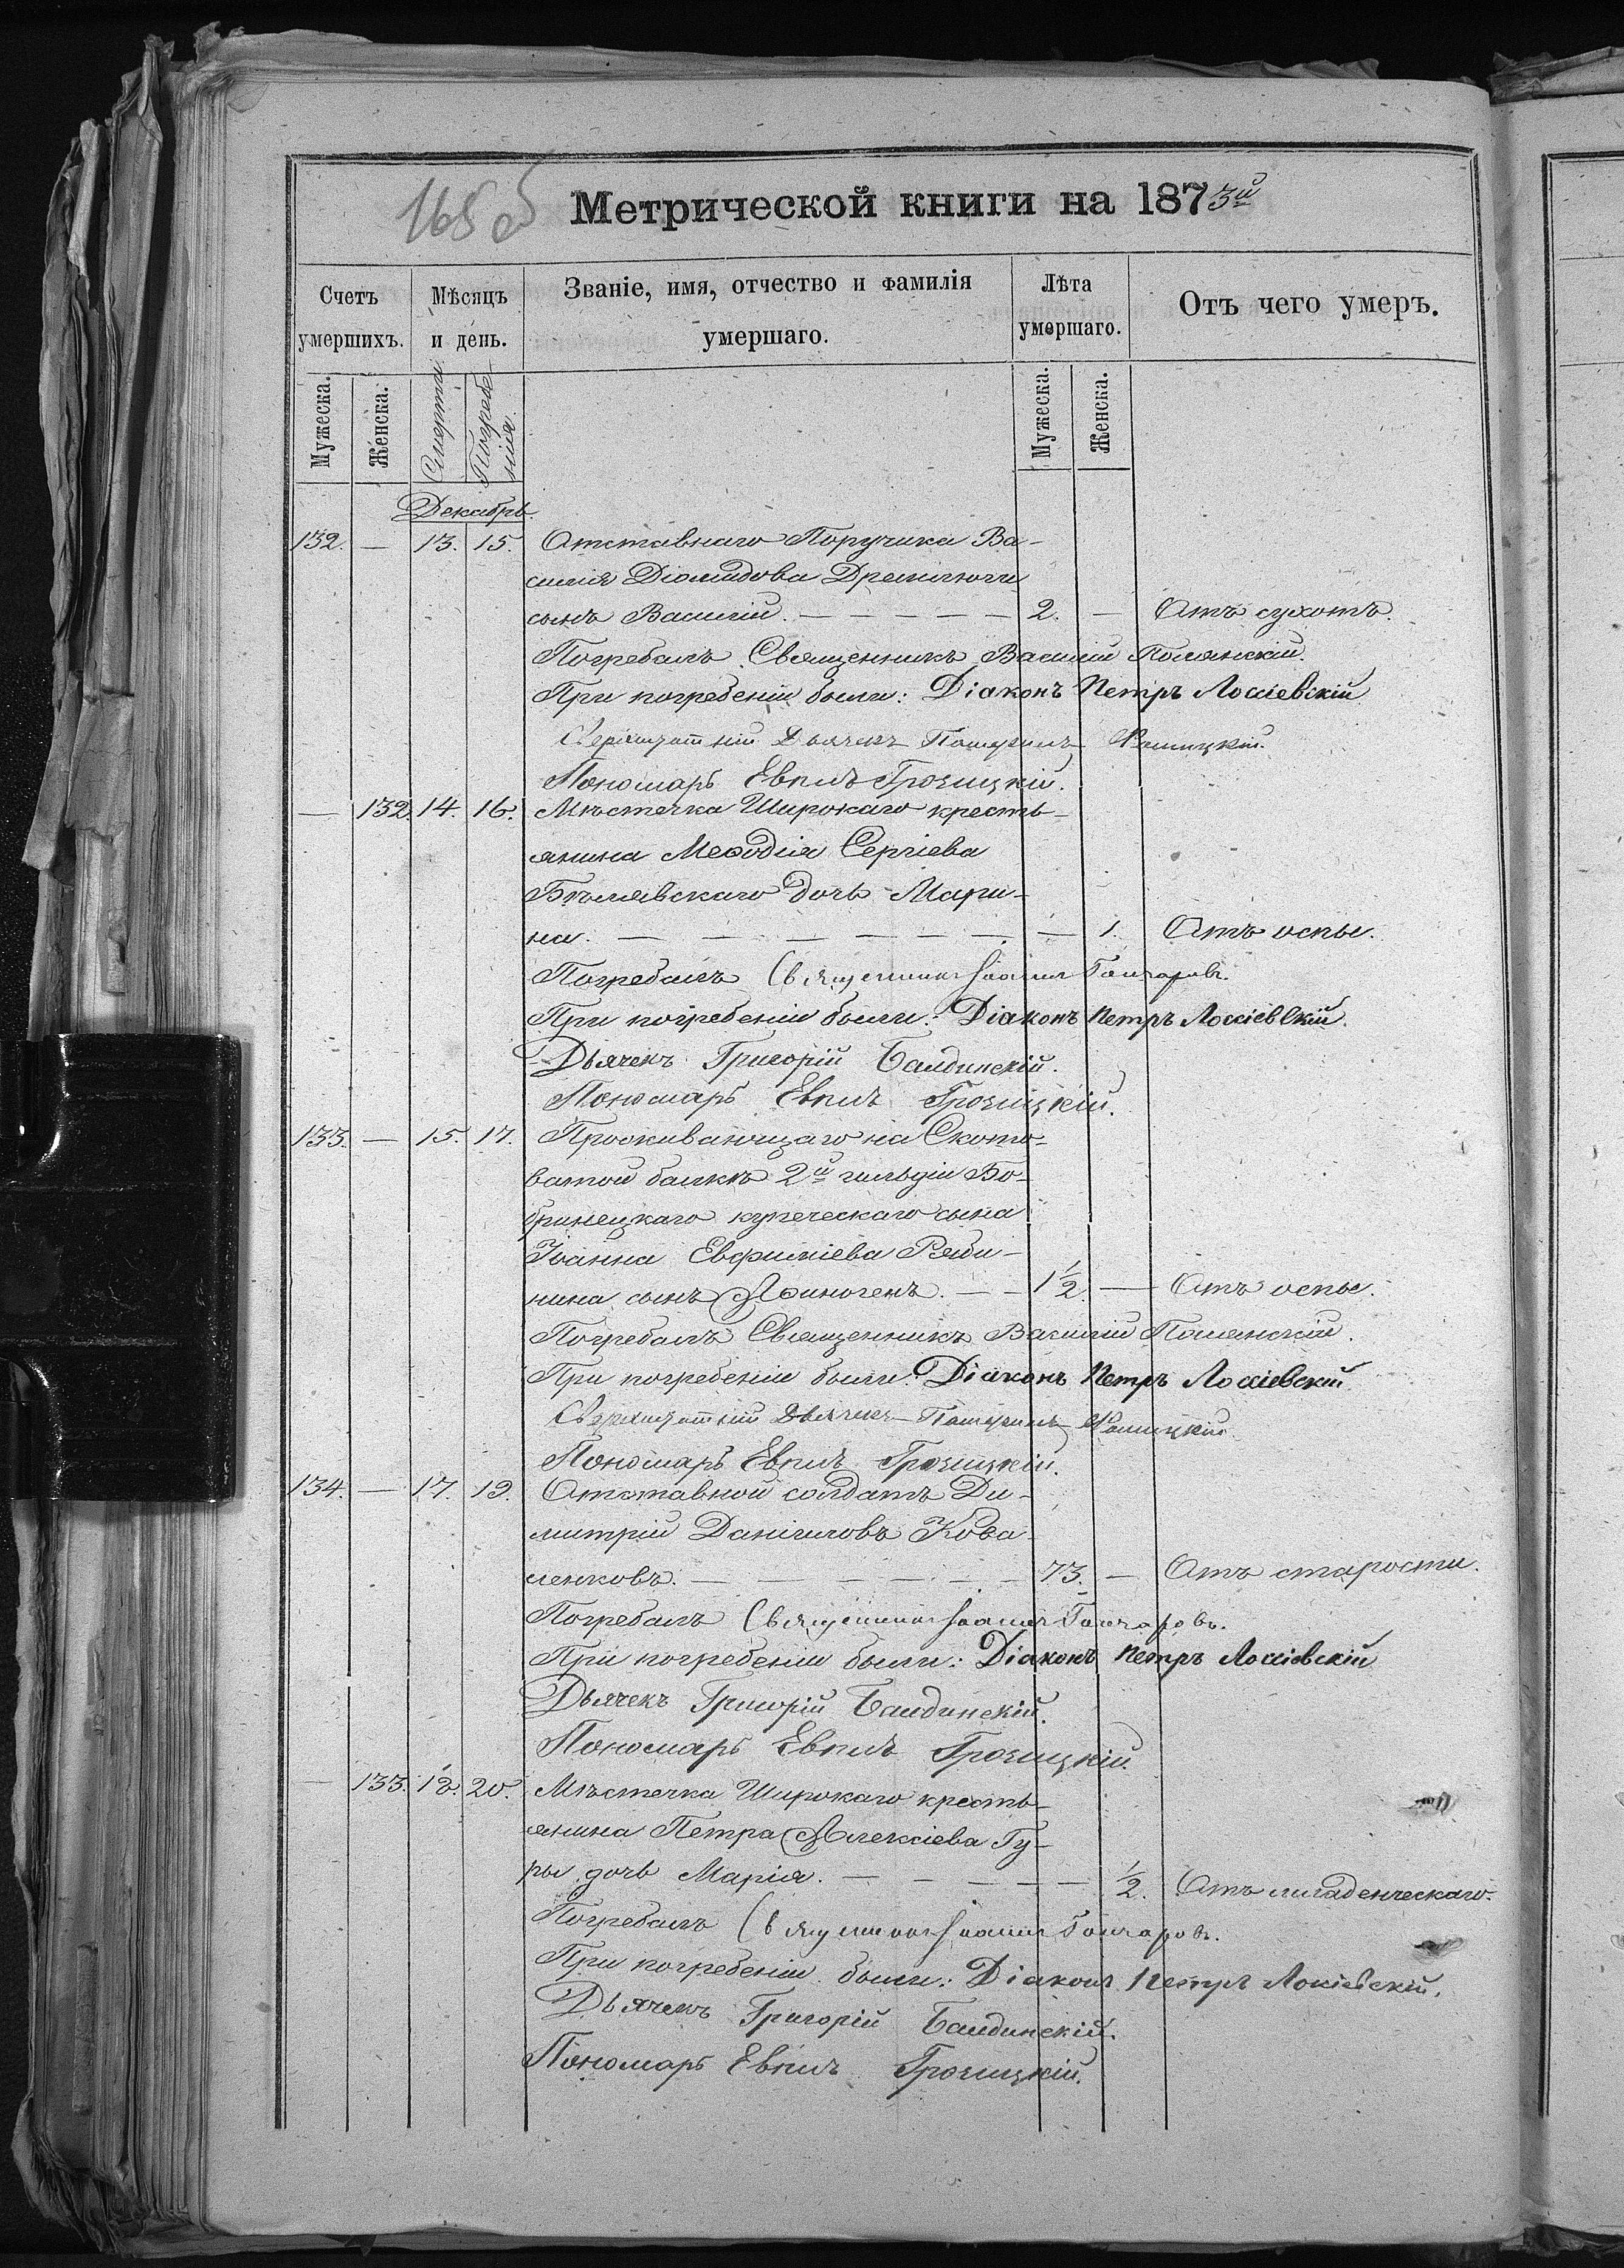 168 об
Метрической книги на 1873й
Счетъ умершихъ.
Мѣсяцъ и день.
Званіе, имя, отчество и фамилія умершаго.
Лѣта умершаго.
Отъ чего умеръ.
Мужеска.
Женска.
Смерти
Погребенія.
Мужеска.
Женска.
Декабрь.
132. — 13. 15. Отставнаго Поручика Ва-
силія Діомидова
сынъ Василій. — 2. — Отъ сухотъ.
Погребалъ Священникъ Василій Полянскій.
При погребеніи были: Діаконъ Петръ Лоссіевскій
Сверхштатній Дьячекъ
Пономарь Евпилъ Грозицкій.
— 132. 14. 16. Мѣстечка Широкаго кресть-
янина Меѳодія Сергіева
Бѣлявскаго дочь Мари-
на. — 1. Отъ оспы.
Погребалъ Священникъ Іоаннъ Гончаровъ.
При погребеніи были: Діаконъ Петръ Лоссіевскій.
Дьячекъ Григорій Балдинскій.
Пономарь Евпилъ Грозицкій.
133. — 15. 17. Проживающаго на Ското-
ватой балкѣ 2й гильдіи Бо-
бринецкаго купеческаго сына
Іоанна Евфиміева Ряби-
нина сынъ Аѳиногенъ. — 1½ — Отъ оспы.
Погребалъ Священникъ Василій Полянскій.
При погребеніи были: Діаконъ Петръ Лоссіевскій
Сверхштатній Дьячекъ
Пономарь Евпилъ Грозицкій.
134. — 17. 19. Отставной солдатъ Ди-
митрій Даніиловъ Кова-
ленковъ. — 73. — Отъ старости.
Погребалъ Священникъ Іоаннъ Гончаровъ.
При погребеніи были: Діаконъ Петръ Лоссіевскій
Дьячекъ Григорій Балдинскій.
Пономарь Евпилъ Грозицкій.
— 133. 18. 20. Мѣстечка Широкаго кресть-
янина Петра Алексіева Гу-
ры дочь Марія. — ½. Отъ младенческаго.
Погребалъ Священникъ Іоаннъ Гончаровъ.
При погребеніи были: Діаконъ Петръ Лоссіевскій.
Дьячекъ Григорій Балдинскій.
Пономарь Евпилъ Грозицкій.